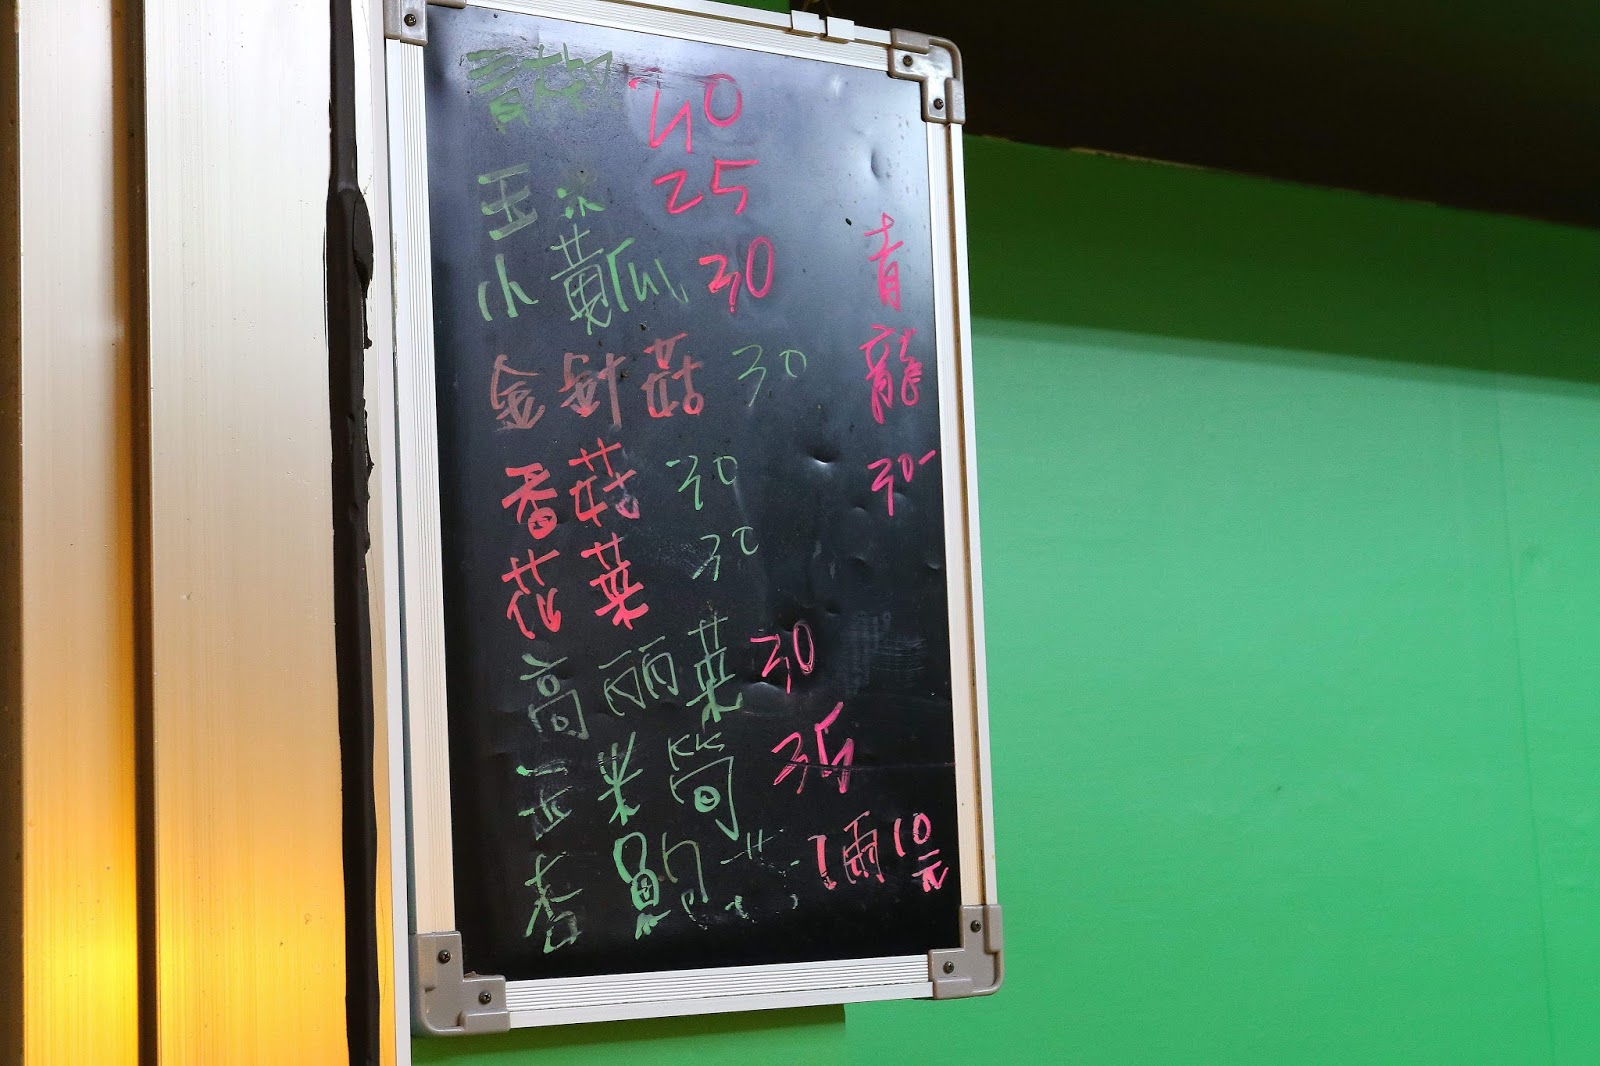 青椒 40
玉米 25
小黃瓜 30
金針菇 30
香菇 30
花菜 30
高丽菜 30
玉米筍 35
杏鮑菇 1兩10元
青龍 30-